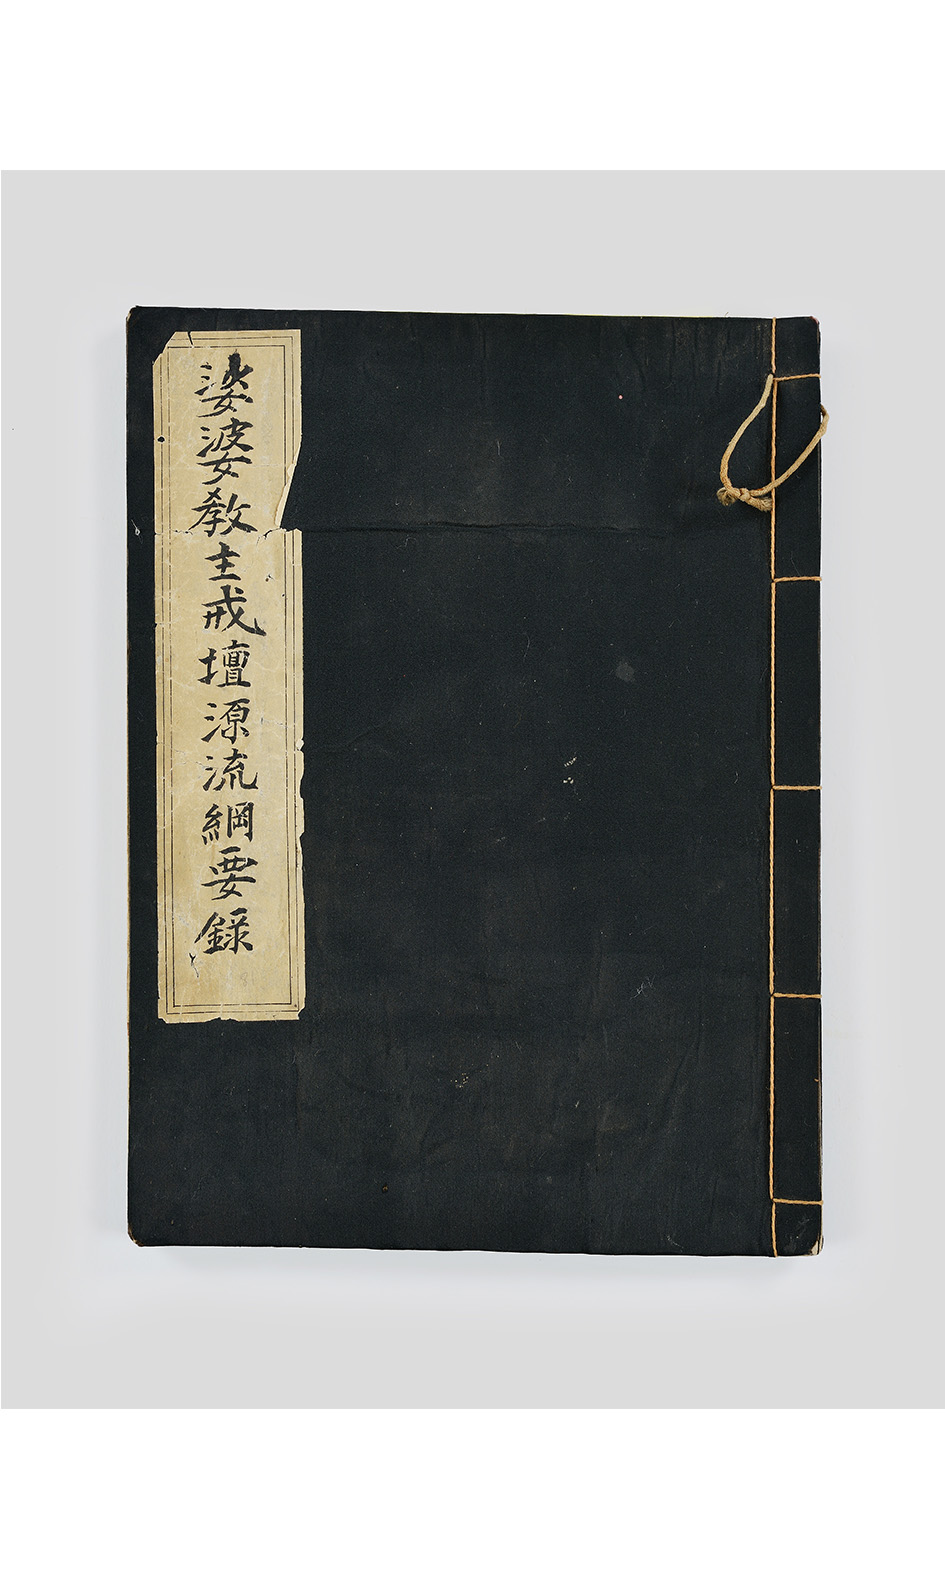 娑婆教主戒壇源流綱要錄